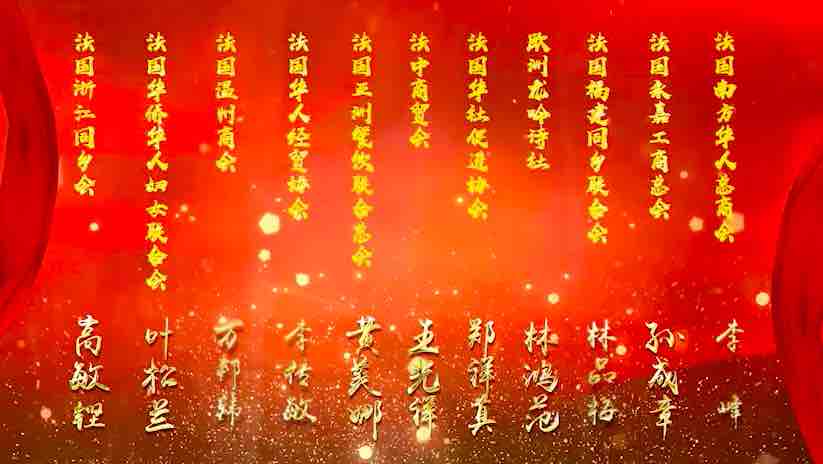 法国南方华人总商会
李峰
法国永嘉工商总会
孙成章
法国福建同乡联合会
林品梅
欧洲龙吟诗社
林鸿范
法国华社促进协会
郑祥真
法中商贸会
王光祥
法国亚洲餐饮联合总会
黄美娜
法国华人经贸协会
李敏
法国温州商会
万邦韩
法国华侨华人妇女联合会
叶松兰
法国浙江同乡会
高敏